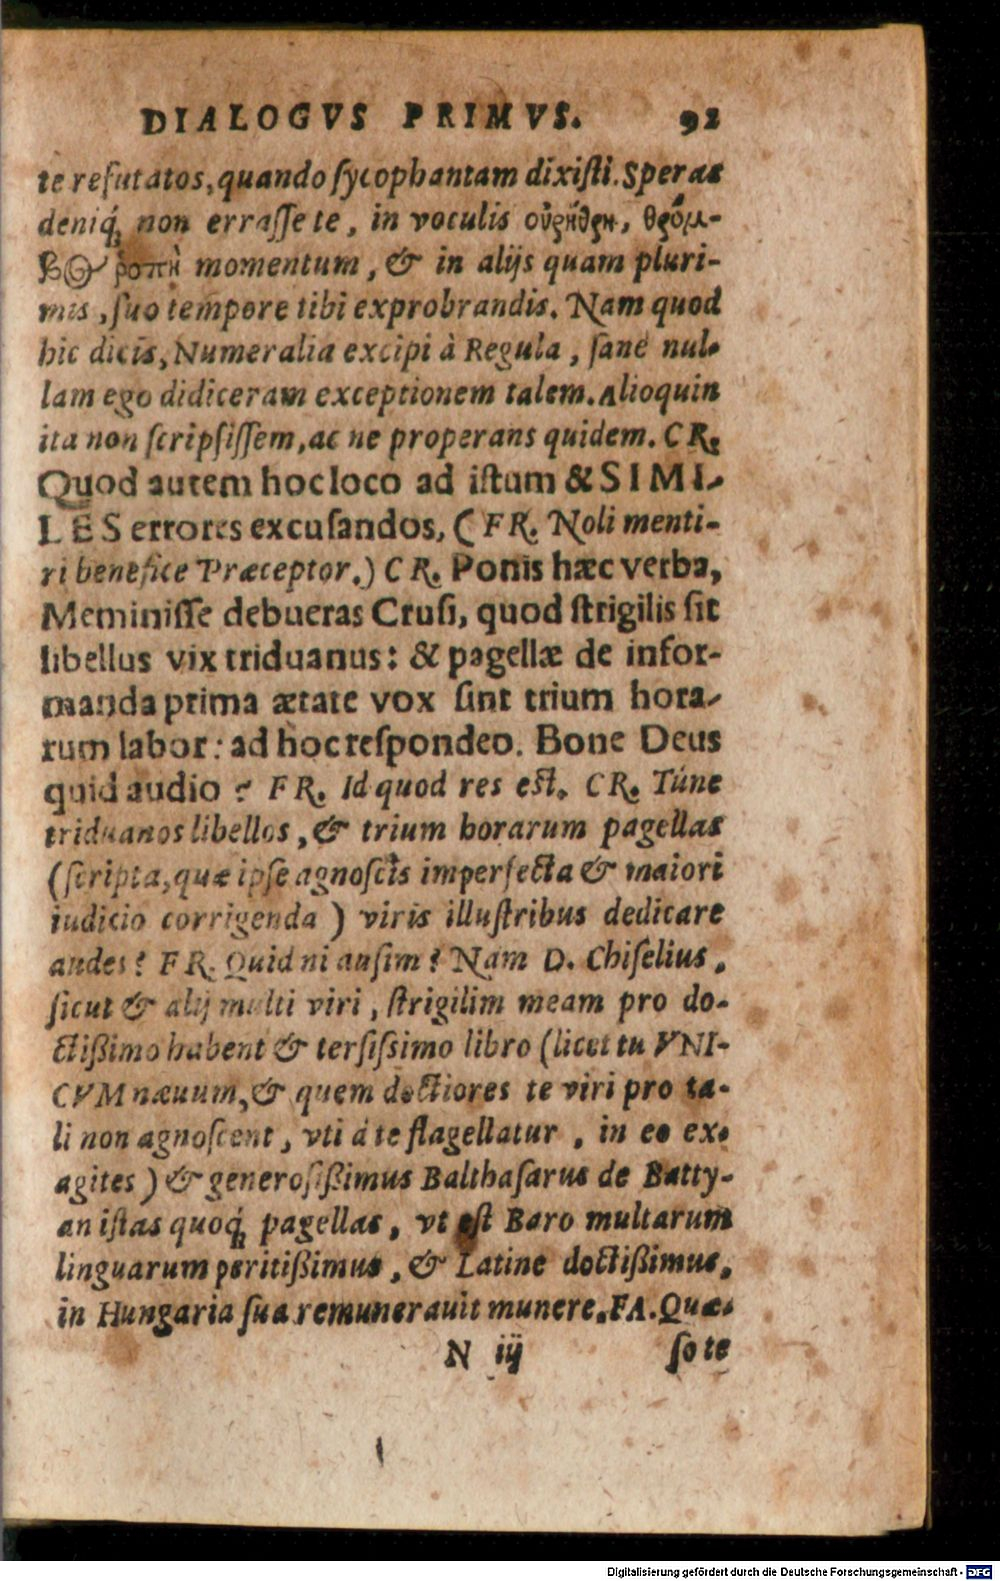 DIALOGVS PRIMVS. 92
te refutatos, quando ſycophantam dixiſti. Speras
deniq́; non erraſſe te, in voculis οὐρήθρη, θρόμ-
βος ῥοπὴ momentum, & in alijs quam pluri-
mis, ſuo tempore tibi exprobrandis. Nam quod
hic dicis, Numeralia excipi à Regula, ſanè nul-
lam ego didiceram exceptionem talem. Alioquin
ita non ſcripſiſſem, ac ne properans quidem. CR.
Quod autem hoc loco ad iſtum & SIMI-
LES errores excuſandos, (FR. Noli menti-
ri benefice Præceptor.) CR. Ponis hæc verba,
Meminiſſe debueras Cruſi, quod ſtrigilis ſit
libellus vix triduanus: & pagellæ de infor-
manda prima ætate vox ſint trium hora-
rum labor: ad hoc reſpondeo. Bone Deus
quid audio? FR. Id quod res eſt. CR. Túne
triduanos libellos, & trium horarum pagellas
(ſcripta, quæ ipſe agnoſcis imperfecta & maiori
iudicio corrigenda) viris illuſtribus dedicare
audes? FR. Quid ni auſim? Nam D. Chiſelius,
ſicut & alij multi viri, ſtrigilim meam pro do-
ctißimo habent & terſiſsimo libro (licet tu VNI-
CVM næuum, & quem doctiores te viri pro ta-
li non agnoſcent, vti á te flagellatur, in eo ex-
agites) & generoſißimus Balthaſarus de Batty-
an iſtas quoq́; pagellas, vt eſt Baro multarum
linguarum peritißimus, & Latine doctißimus,
in Hungaria ſua remunerauit munere. FA. Quæ-
N iij ſo te
Digitalisierung gefördert durch die Deutsche Forschungsgemeinschaft - DFG